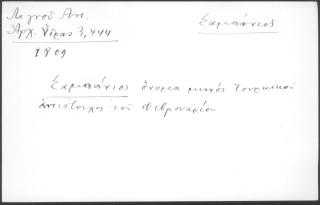 Λιγνοῦ Ἀντ.
Ἀρχ. Ὕδρας 3, 444
1809
Σαμπάνιος
Σαμπάνιος ὄνομα μηνός Τουρκικοῦ
ἀντίστοιχος τοῦ Φεβρουαρίου